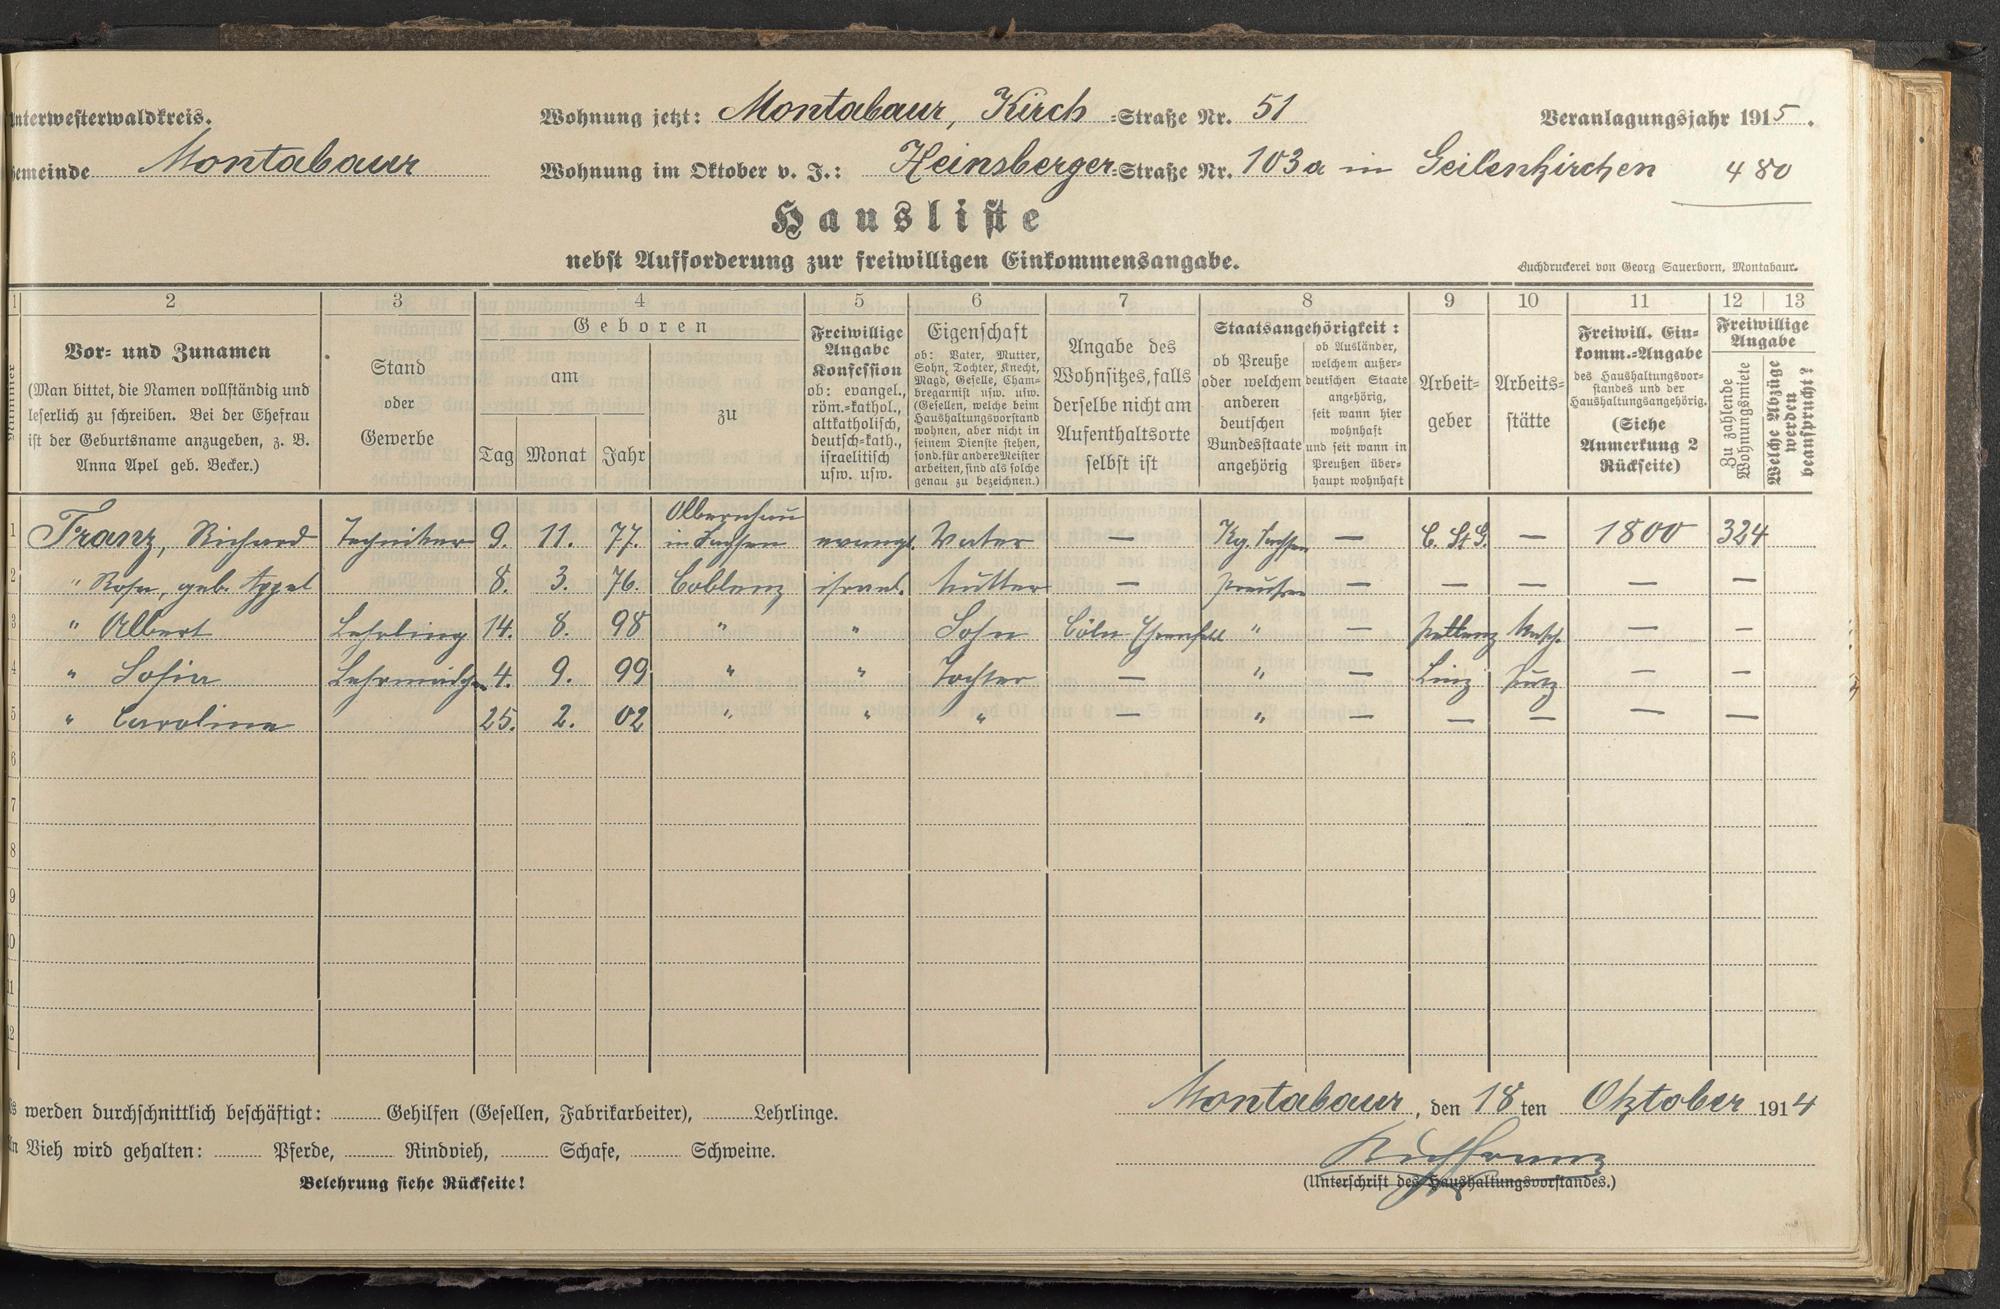 Unterwesterwaldkreis.
Wohnung jetzt: Montabaur, Kirch -Straße Nr. 51
Veranlagungsjahr 1915.
Gemeinde Montabaur
Wohnung im Oktober v. J.: Heinsberger-Straße Nr. 103a in Geilenkirchen
480
Hausliste
nebst Aufforderung zur freiwilligen Einkommensangabe.
Buchdruckerei von Georg Sauerborn, Montabaur.
1 2 3 4 5 6 7 8 9 10 11 12 13
Nummer
Vor- und Zunamen
(Man bittet, die Namen vollständig und
leserlich zu schreiben. Bei der Ehefrau
ist der Geburtsname anzugeben, z. B.
Anna Apel geb. Becker.)
Stand
oder
Gewerbe
Geboren
am
Tag Monat Jahr
zu
Freiwillige
Angabe
Konfession
ob: evangel.,
röm.-kathol.,
altkatholisch,
deutsch-kath.,
israelitisch
usw. usw.
Eigenschaft
ob: Vater, Mutter,
Sohn, Tochter, Knecht,
Magd, Geselle, Cham-
bregarnist usw. usw.
(Gesellen, welche beim
Haushaltungsvorstand
wohnen, aber nicht in
seinem Dienste stehen,
sond. für andere Meister
arbeiten, sind als solche
genau zu bezeichnen.)
Angabe des
Wohnsitzes, falls
derselbe nicht am
Aufenthaltsorte
selbst ist
Staatsangehörigkeit:
ob Preuße
oder welchem
anderen
deutschen
Bundesstaate
angehörig
ob Ausländer,
welchem außer-
deutschen Staate
angehörig,
seit wann hier
wohnhaft
und seit wann in
Preußen über-
haupt wohnhaft
Arbeit-
geber
Arbeits-
stätte
Freiwill. Ein-
komm.-Angabe
des Haushaltungsvor-
standes und der
Haushaltungsangehörig.
(Siehe
Anmerkung 2
Rückseite)
Freiwillige
Angabe
Zu zahlende
Wohnungsmiete
Welche Abzüge
werden
beansprucht?
Olbernhau
1 Franz, Richard Techniker 9. 11. 77. in Sachsen evangl. Vater — Kg. Sachsen — C. St. G. — 1800 324
2 " Rosa, geb. Appel 8. 3. 76. Coblenz israel. Mutter — Preußen — — — — —
3 " Albert Lehrling 14. 8. 98 " " Sohn Cöln Ehrenfeld " — — —
4 " Sofia Lehrmädchen 4. 9. 99 " " Tochter — " — Linz — —
5 " Carolina 25. 2. 02 " " " — " — — — — —
6
7
8
9
10
11
12
Es werden durchschnittlich beschäftigt: Gehilfen (Gesellen, Fabrikarbeiter), Lehrlinge.
An Vieh wird gehalten: Pferde, Rindvieh, Schafe, Schweine.
Belehrung siehe Rückseite!
Montabaur, den 18 ten Oktober 1914
(Unterschrift des Haushaltungsvorstandes.)